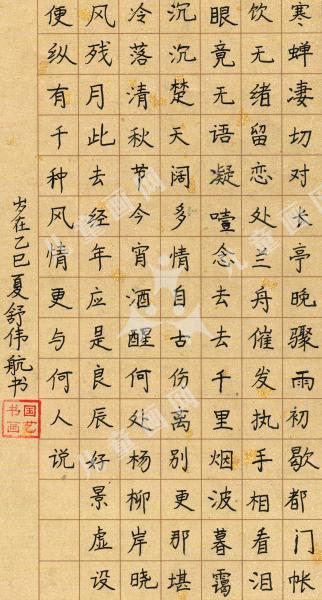 寒蝉凄切对长亭晚骤雨初歇都门帐
饮无绪留恋处兰舟催发执手相看泪
眼竟无语凝噎念去去千里烟波暮霭
沉沉楚天阔多情自古伤离别更那堪
冷落清秋节今宵酒醒何处杨柳岸晓
风残月此去经年应是良辰好景虚设
便纵有千种风情更与何人说
岁在乙巳夏舒伟航书
国艺书画
儿童画网